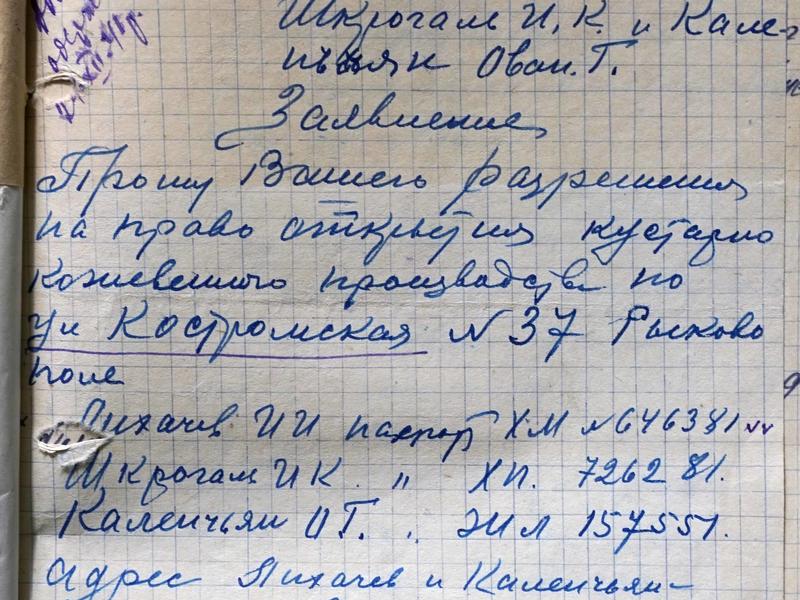 Шкрогаль И.К. и Кале-
нчьян Ован.Г.
Заявление
Прошу Вашего разрешения
на право открытия кустарно
кожевенного производства по
ул Костромская № 37
поле
Лихачев И И паспорт ХМ №646381
Шкрогаль И К. " ХП. 726281.
Каленчьян О Г. " 157551.
Адрес Лихачев и Каленчьян-